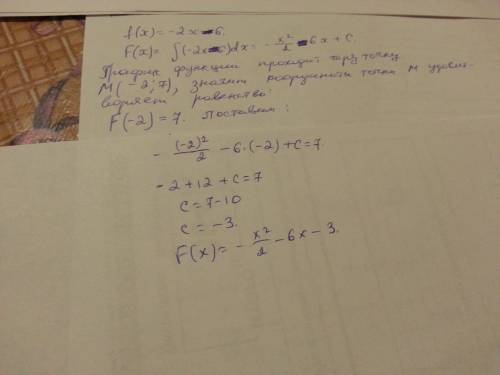 f(x) = -2x - 6.
F(x) = ∫(-2x-6)dx = -x²/2 - 6x + c.
График функции проходит через точку
M(-2; 7), значит координаты точки M удовл-
воряет равенство:
F(-2) = 7. Поставим:
- (-2)²/2 - 6·(-2) + c = 7.
-2 + 12 + c = 7
c = 7 - 10
c = -3.
F(x) = - x²/2 - 6x - 3.